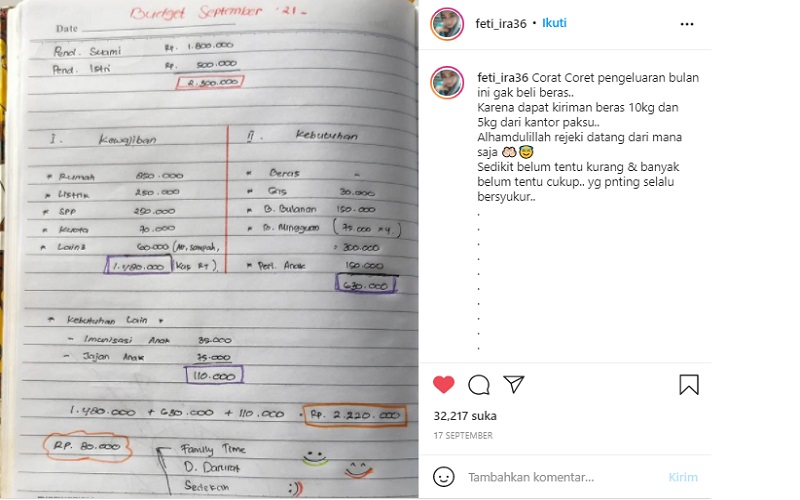 Budget September '21-
Date
Pend. Suami Rp. 1.800.000
Pend. Istri Rp. 500.000
2.300.000
I. Kewajiban
* Rumah 850.000
* Listrik 250.000
* SPP 250.000
* Kuota 70.000
* Lain2 60.000 (Air, sampah,
1.480.000 Kas RT)
II. Kebutuhan
* Beras -
* Gas 30.000
* B. Bulanan 150.000
* B. Mingguan (75.000 x 4)
= 300.000
* Perl. Anak 150.000
630.000
* Kebutuhan Lain *
- Imunisasi Anak 35.000
- Jajan Anak 75.000
110.000
1.480.000 + 630.000 + 110.000 = Rp. 2.220.000
RP. 80.000
Family Time
D. Darurat
Sedekah
:))
feti_ira36 • Ikuti
feti_ira36 Corat Coret pengeluaran bulan
ini gak beli beras..
Karena dapat kiriman beras 10kg dan
5kg dari kantor paksu..
Alhamdulillah rejeki datang dari mana
saja 🤲🏻😇
Sedikit belum tentu kurang & banyak
belum tentu cukup.. yg pnting selalu
bersyukur..
.
.
.
.
.
.
.
.
.
.
32,217 suka
17 SEPTEMBER
Tambahkan komentar... Kirim